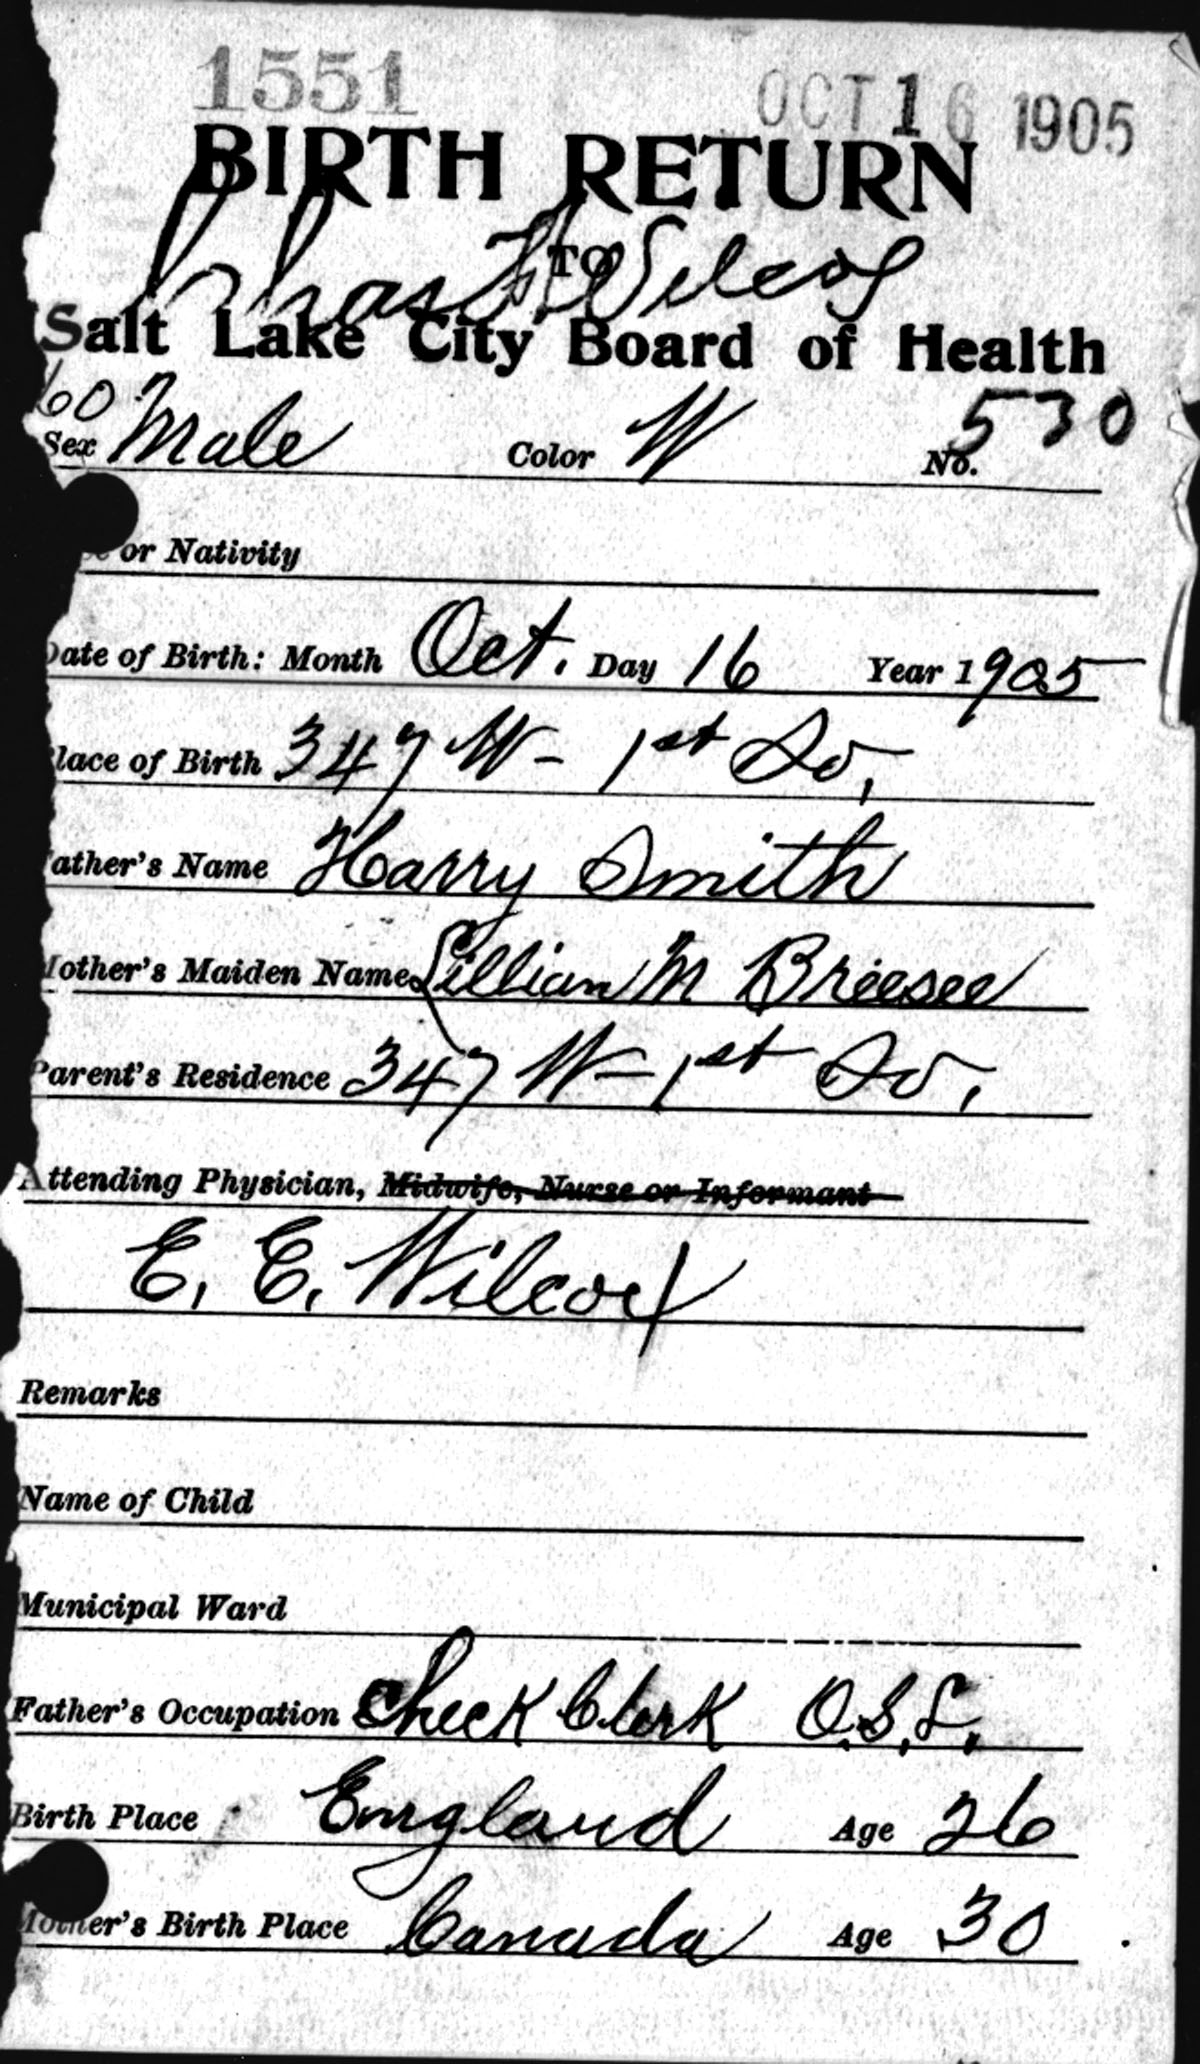 1551 OCT 16 1905
BIRTH RETURN
TO
Chas H Wilcox
Salt Lake City Board of Health
60
Sex Male Color W No. 530
or Nativity
Date of Birth: Month Oct. Day 16 Year 1905
Place of Birth 347 W - 1st So,
Father's Name Harry Smith
Mother's Maiden Name Lillian M Breesee
Parent's Residence 347 W - 1st So,
Attending Physician, Midwife, Nurse or Informant
E. E. Wilcox
Remarks
Name of Child
Municipal Ward
Father's Occupation Check Clerk O.S.L.
Birth Place England Age 26
Mother's Birth Place Canada Age 30